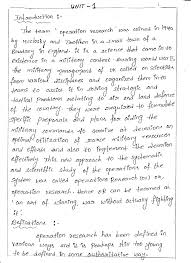 UNIT - 1
Introduction :-
The term "operation research" was coined in 1940
by McClosky and Trefthen in a small town of
Bowdsey in England. It is a science that came in to
existence in a military context. During world war II,
the military management of UK called on scientists
from various disciplines and organized them into
teams to assist it in solving strategic and
tactical problems relating to air and land defence
of the country. they were required to formulate
specific proposals and plans for aiding the
military commands to arrive at decisions on
optimal utilization of military resources
and efforts and also to implement the decisions
effectively. this new approach to the systematic
and scientific study of the operations of the
system was called operations research (OR) or
operation research. Hence OR can be termed as
an art of winning war without actually fighting
it.
Definitions :-
operation research has been defined in
various ways and it is perhaps still too young
to be defined in some authoritative way.